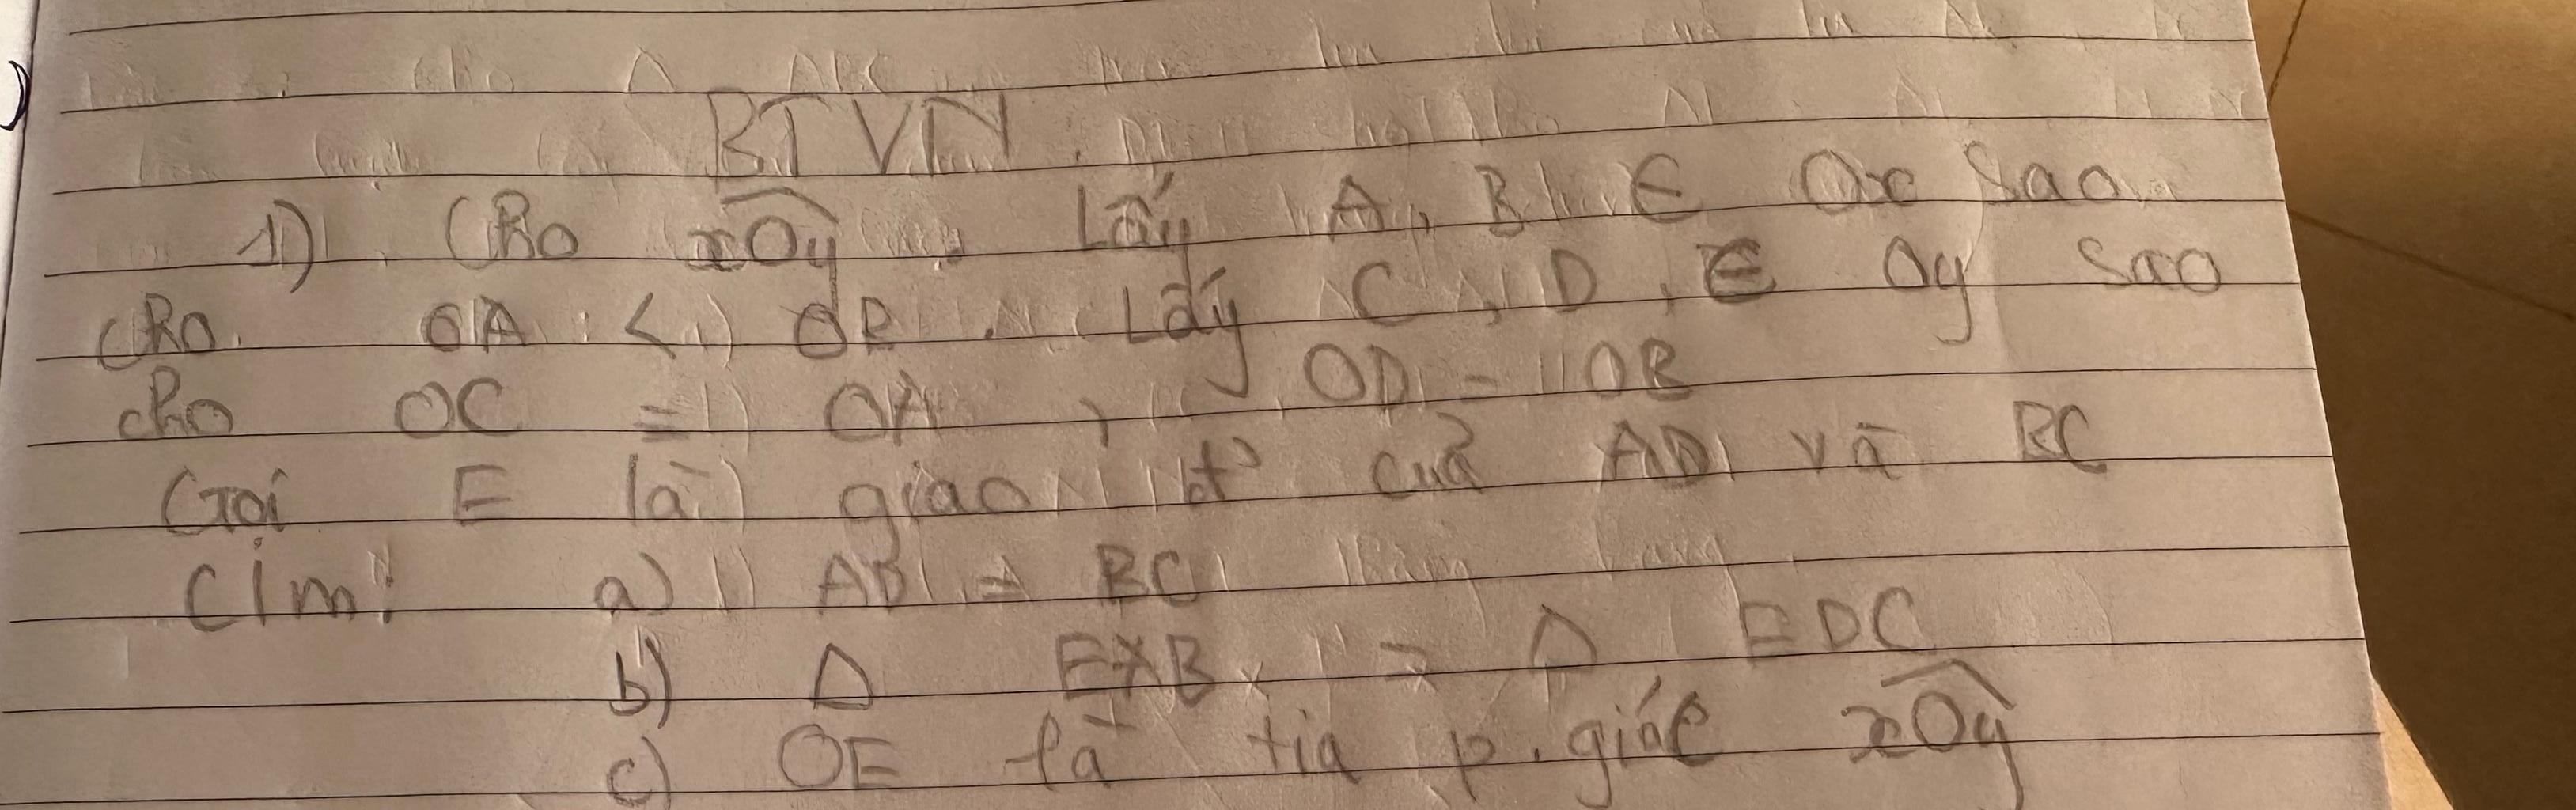 BTVN
1) Cho xOy. Lấy A, B ∈ Ox sao
cho OA < OB. Lấy C, D, ∈ Oy sao
cho OC = OA, OD = OB
Gọi E là giao đ' của AD và BC
C/m: a) AD = BC
b) Δ EAB = Δ EDC
c) OE là tia p.giác xOy